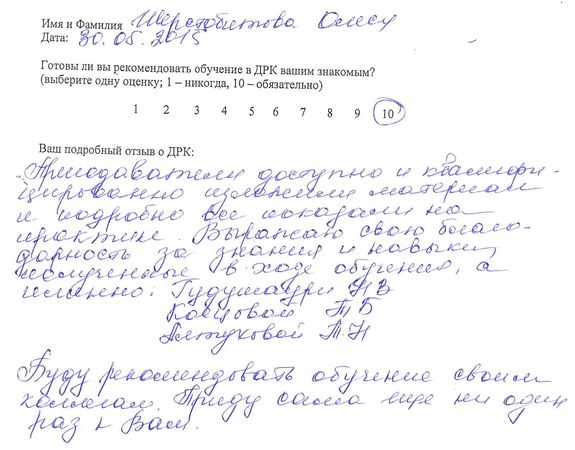 Имя и Фамилия Шерстобитова Олеся
Дата: 30.05.2015
Готовы ли вы рекомендовать обучение в ДРК вашим знакомым?
(выберите одну оценку; 1 – никогда, 10 – обязательно)
1 2 3 4 5 6 7 8 9 10
Ваш подробный отзыв о ДРК:
Преподаватели доступно и квалифи-
цированно изложили материал
и подробно все показали на
практике. Выражаю свою благо-
дарность за знания и навыки,
полученные в ходе обучения, а
именно: Гудушаури НВ
ТБ
Алтуховой Т.Н
Буду рекомендовать обучение своим
коллегам. Приду сама еще ни один
раз к Вам.